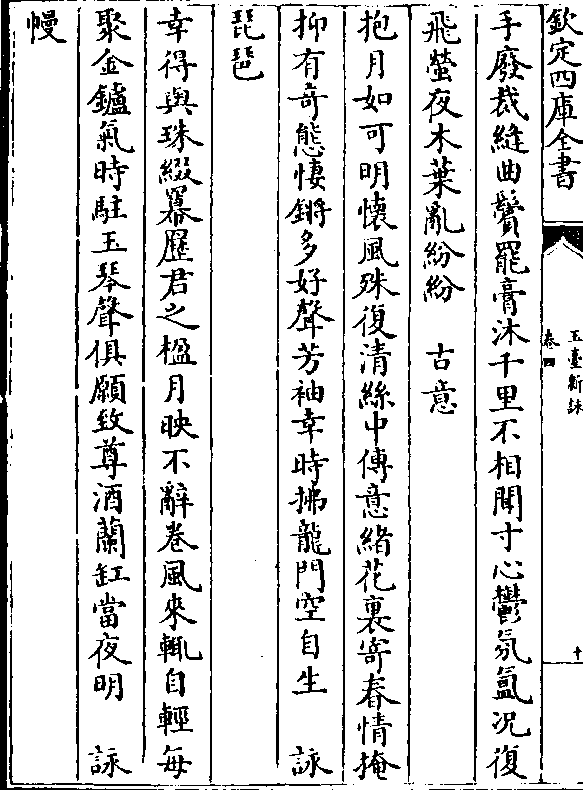 欽定四庫全書
玉臺新詠
卷四
十
手廢裁縫曲鬢罷膏沐千里不相聞寸心鬱氛氲况復
飛螢夜木葉亂紛紛　古意
抱月如可明懷風殊復清絲中傳意緒花裏寄春情掩
抑有奇態悽鏘多好聲芳袖幸時拂龍門空自生　詠
琵琶
幸得與珠綴羃歷君之楹月映不辭卷風來輒自輕每
聚金鑪氣時駐玉琴聲俱願致尊酒蘭缸當夜明　詠
幔